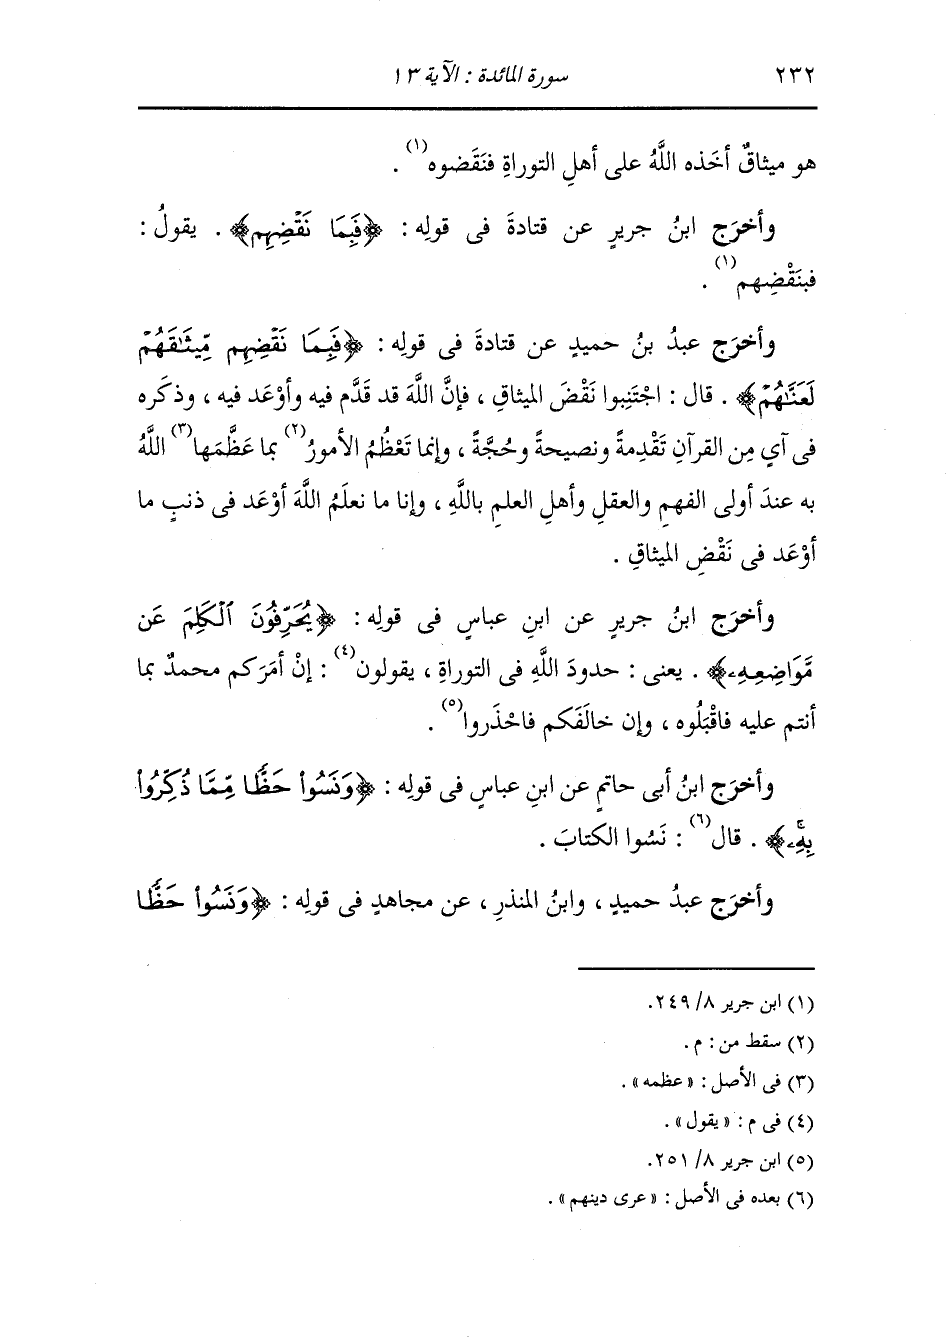 ٢٣٢ سورة المائدة : الآية ١٣
هو ميثاقٌ أخَذه اللَّهُ على أهلِ التوراةِ فنَقَضوه(١) .
وأخرَج ابنُ جريرٍ عن قتادةَ فى قولِه : ﴿فَبِمَا نَقْضِهِم﴾ . يقولُ :
فبنَقْضِهم(١) .
وأخرَج عبدُ بنُ حميدٍ عن قتادةَ فى قولِه : ﴿فَبِمَا نَقْضِهِم مِّيثَٰقَهُمْ
لَعَنَّٰهُمْ﴾ . قال : اجْتَنِبوا نَقْضَ الميثاقِ ، فإنَّ اللَّهَ قد قَدَّم فيه وأوْعَد فيه ، وذكَره
فى آيٍ مِن القرآنِ تَقْدِمةً ونصيحةً وحُجَّةً ، وإنما تَعْظُمُ الأمورُ(٢) بما عَظَّمَها(٣) اللَّهُ
به عندَ أولى الفهمِ والعقلِ وأهلِ العلمِ باللَّهِ ، وإنا ما نعلَمُ اللَّهَ أوْعَد فى ذنبٍ ما
أوْعَد فى نَقْضِ الميثاقِ .
وأخرَج ابنُ جريرٍ عن ابنِ عباسٍ فى قولِه : ﴿يُحَرِّفُونَ ٱلْكَلِمَ عَن
مَّوَاضِعِهِۦ﴾ . يعنى : حدودَ اللَّهِ فى التوراةِ ، يقولون(٤) : إنْ أمَرَكم محمدٌ بما
أنتم عليه فاقْبَلُوه ، وإن خالَفَكم فاحْذَروا(٥) .
وأخرَج ابنُ أبى حاتمٍ عن ابنِ عباسٍ فى قولِه : ﴿وَنَسُوا۟ حَظًّا مِّمَّا ذُكِّرُوا۟
بِهِۦۚ﴾ . قال(٦) : نَسُوا الكتابَ .
وأخرَج عبدُ حميدٍ ، وابنُ المنذرِ ، عن مجاهدٍ فى قولِه : ﴿وَنَسُوا۟ حَظًّا
(١) ابن جرير ٨/ ٢٤٩.
(٢) سقط من : م .
(٣) فى الأصل : « عظمه » .
(٤) فى م : « يقول » .
(٥) ابن جرير ٨/ ٢٥١.
(٦) بعده فى الأصل : « عرى دينهم » .